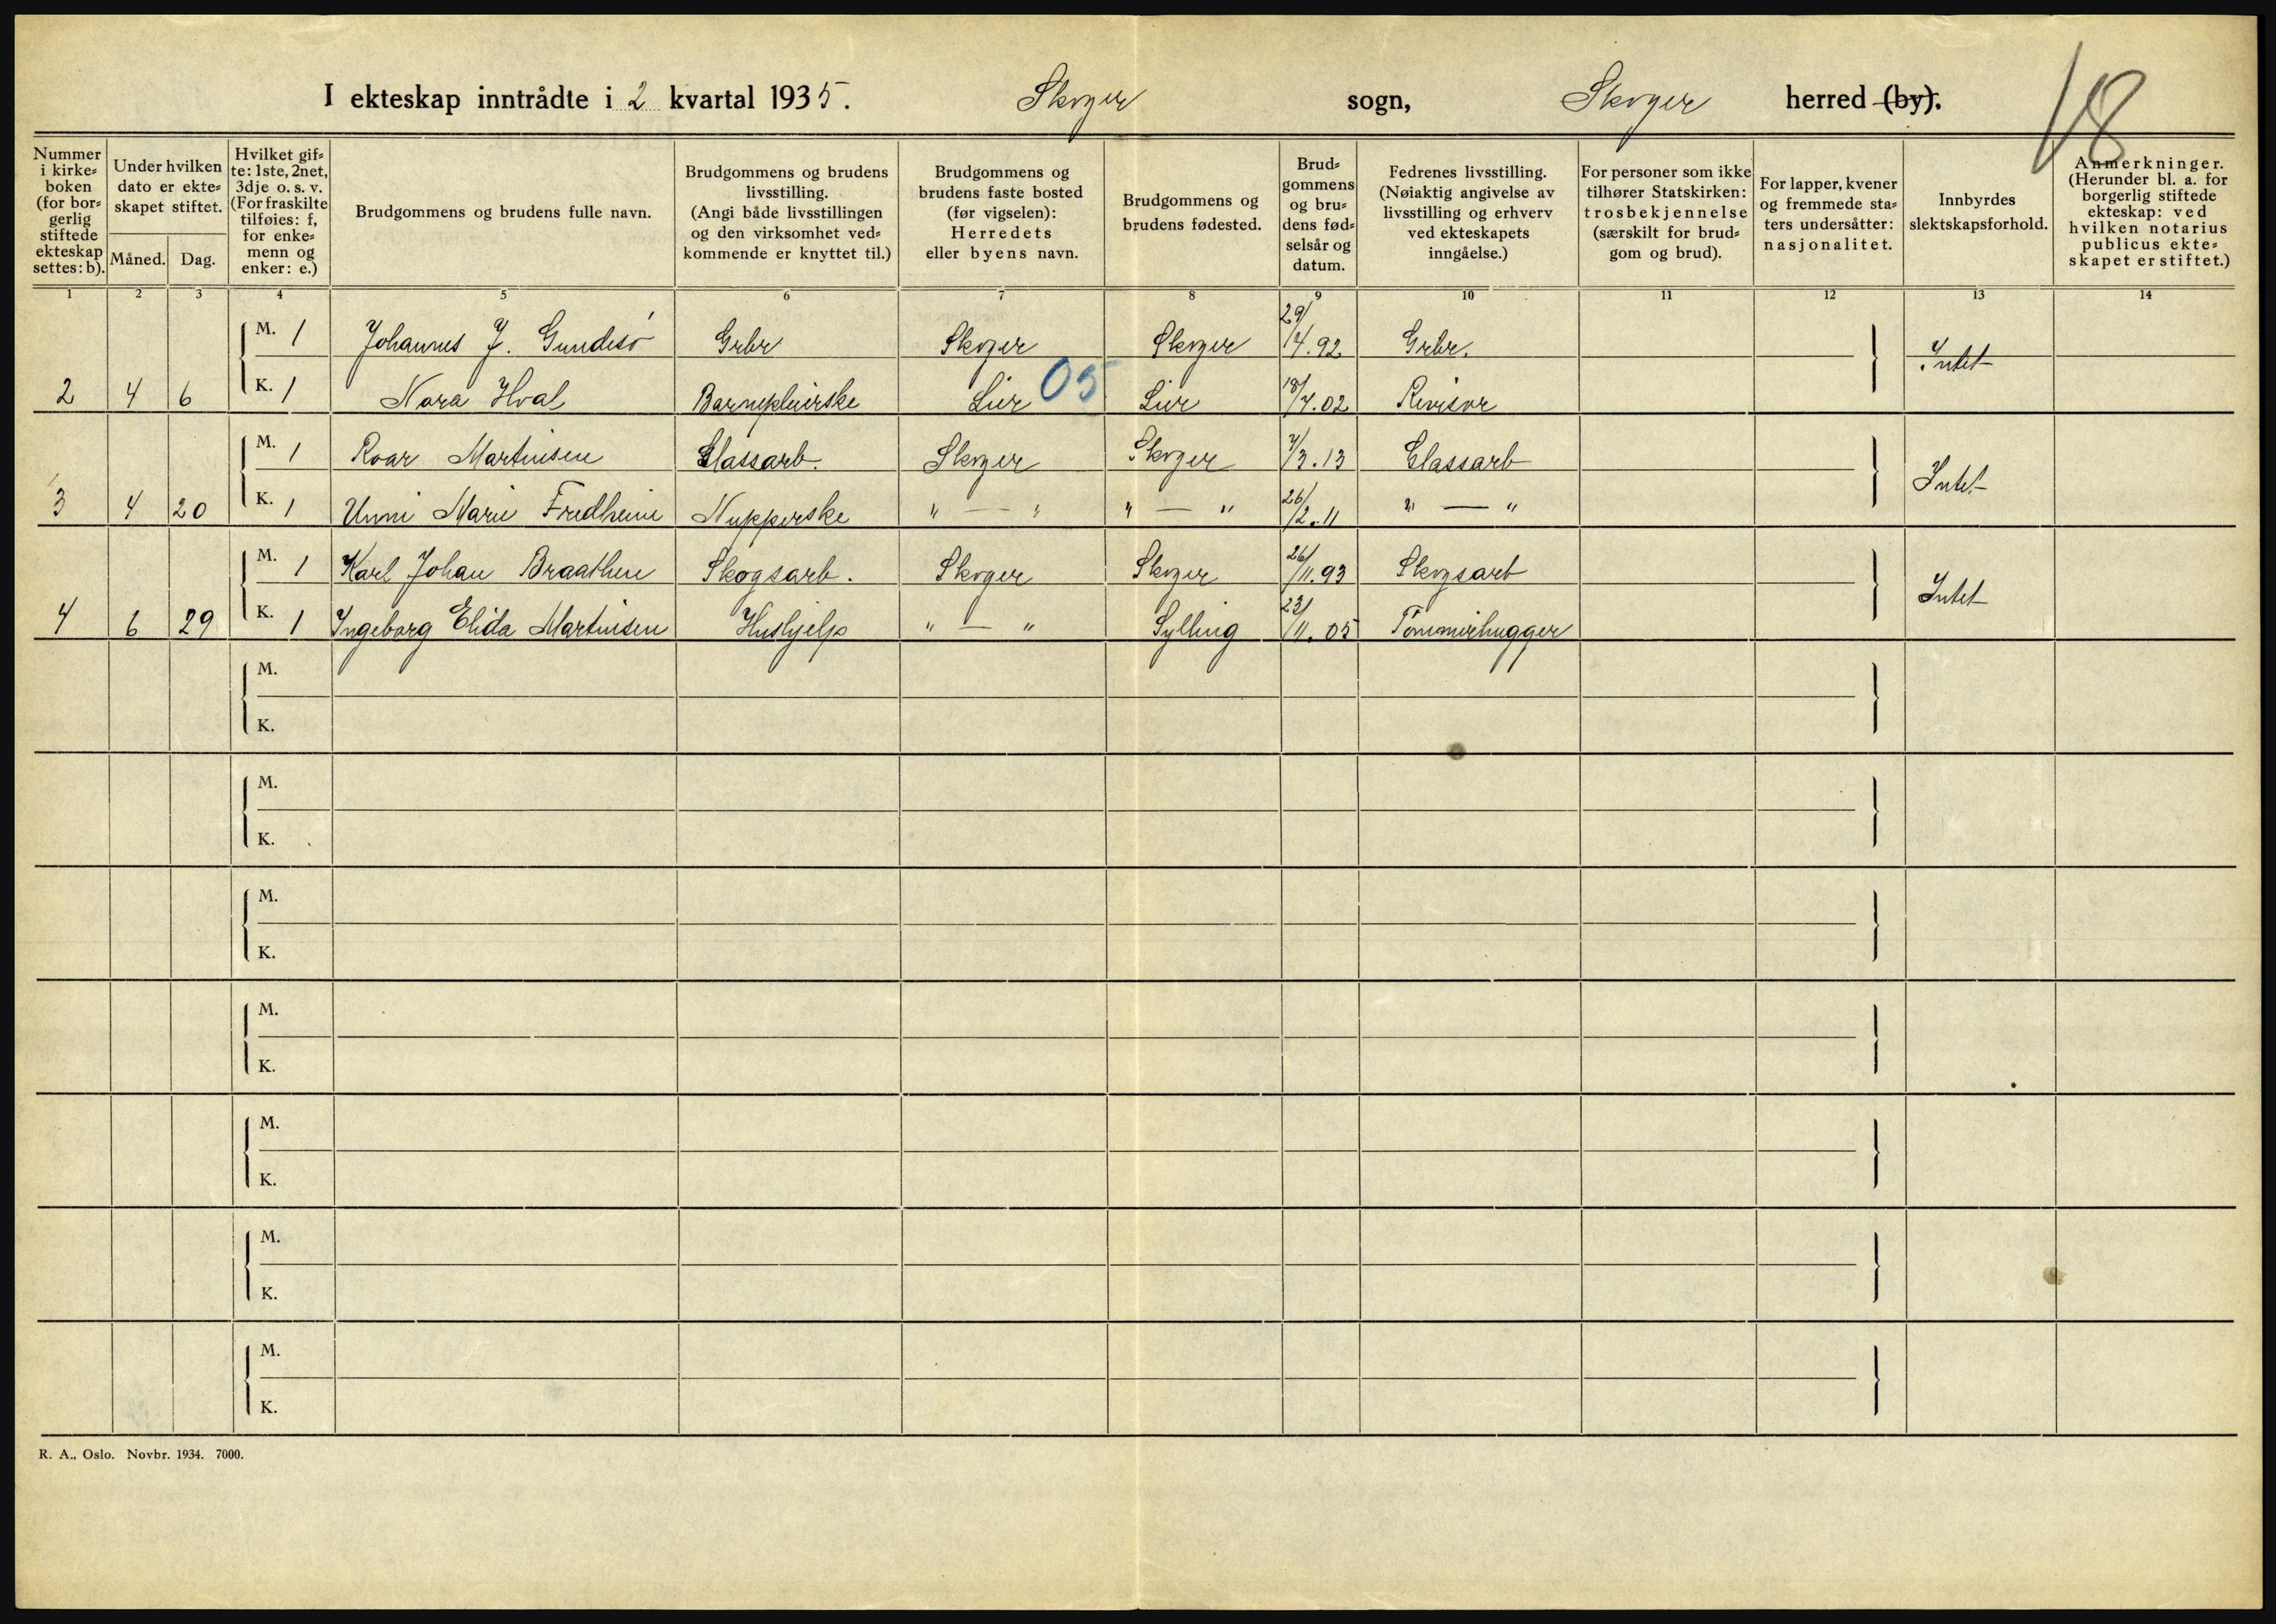 18
I ekteskap inntrådte i 2 kvartal 1935. Skoger sogn, Skoger herred (by).
Nummer i kirke=boken (for bor=gerlig stiftede ekteskap settes: b).
Under hvilken dato er ekte=skapet stiftet.
Måned. Dag.
Hvilket gif=te: 1ste, 2net, 3dje o. s. v. (For fraskilte tilføies: f, for enke=menn og enker: e.)
Brudgommens og brudens fulle navn.
Brudgommens og brudens livsstilling. (Angi både livsstillingen og den virksomhet ved=kommende er knyttet til.)
Brudgommens og brudens faste bosted (før vigselen): Herredets eller byens navn.
Brudgommens og brudens fødested.
Brud=gommens og bru=dens fød=selsår og datum.
Fedrenes livsstilling. (Nøiaktig angivelse av livsstilling og erhverv ved ekteskapets inngåelse.)
For personer som ikke tilhører Statskirken: trosbekjennelse (særskilt for brud=gom og brud).
For lapper, kvener og fremmede sta=ters undersåtter: nasjonalitet.
Innbyrdes slektskapsforhold.
Anmerkninger. (Herunder bl. a. for borgerlig stiftede ekteskap: ved hvilken notarius publicus ekte=skapet er stiftet.)
1 2 3 4 5 6 7 8 9 10 11 12 13 14
M. 1 Johannes J. Gundesø Grbr Skoger Skoger 29/4.92 Grbr. Intet
2 4 6 K. 1 Nora Hval Barnepleierske Lier 05 Lier 18/7.02 Revisor
M. 1 Roar Martinsen Glassarb. Skoger Skoger 7/3.13 Glassarb Intet
3 4 20 K. 1 Unni Marie Fredheim Nupperske " — " " — " 26/2.11 " — "
M. 1 Karl Johan Braathen Skogsarb. Skoger Skoger 26/11.93 Skogsarb Intet
4 6 29 K. 1 Ingeborg Elida Martinsen Hushjelp " — " Sylling 23/11.05 Tømmerhugger
M.
K.
M.
K.
M.
K.
M.
K.
M.
K.
M.
K.
M.
K.
R. A., Oslo. Novbr. 1934. 7000.